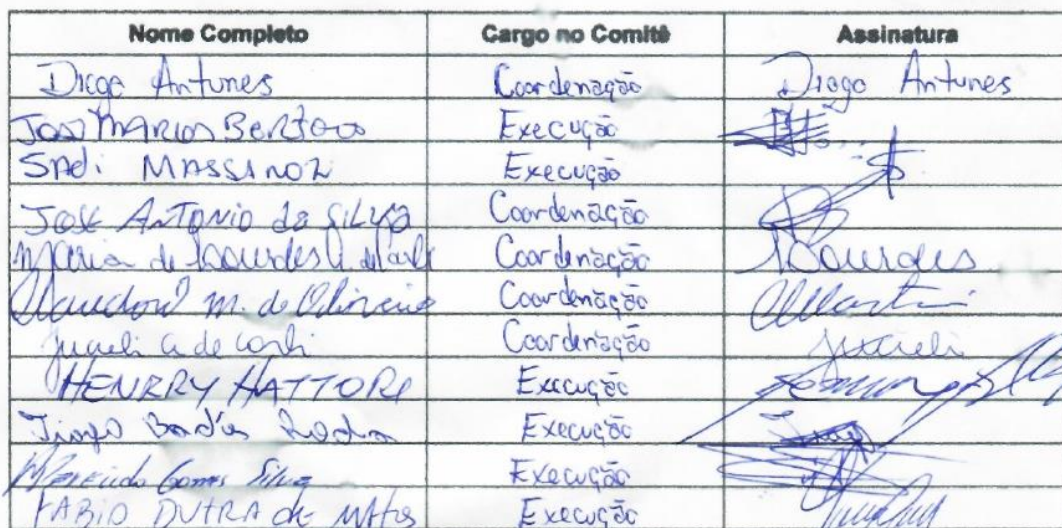 Nome Completo Cargo no Comitê Assinatura
Diogo Antunes Coordenação Diogo Antunes
José Marion Execução
SADi MASSiNOZ Execução
José Antonio da Silva Coordenação
Maria de Lourdes Coordenação Lourdes
m. de Oliveira Coordenação
Juceli de Carli Coordenação Juceli
HENRRY HATTORI Execução
Tiago Rocha Execução
Gomes Silva Execução
FABIO DUTRA de Mattos Execução